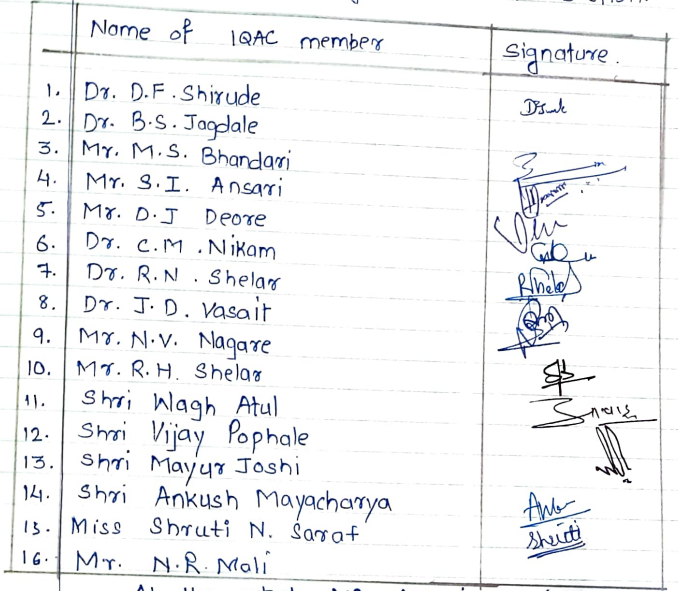 Name of IQAC member Signature.
1. Dr. D.F. Shirude
2. Dr. B.S. Jagdale
3. Mr. M.S. Bhandari
4. Mr. S.I. Ansari
5. Mr. D.J Deore
6. Dr. C.M. Nikam
7. Dr. R.N. Shelar
8. Dr. J.D. Vasait
9. Mr. N.V. Nagare
10. Mr. R.H. Shelar
11. Shri Wagh Atul
12. Shri Vijay Pophale
13. Shri Mayur Joshi
14. Shri Ankush Mayacharya
15. Miss Shruti N. Saraf
16. Mr. N.R. Mali